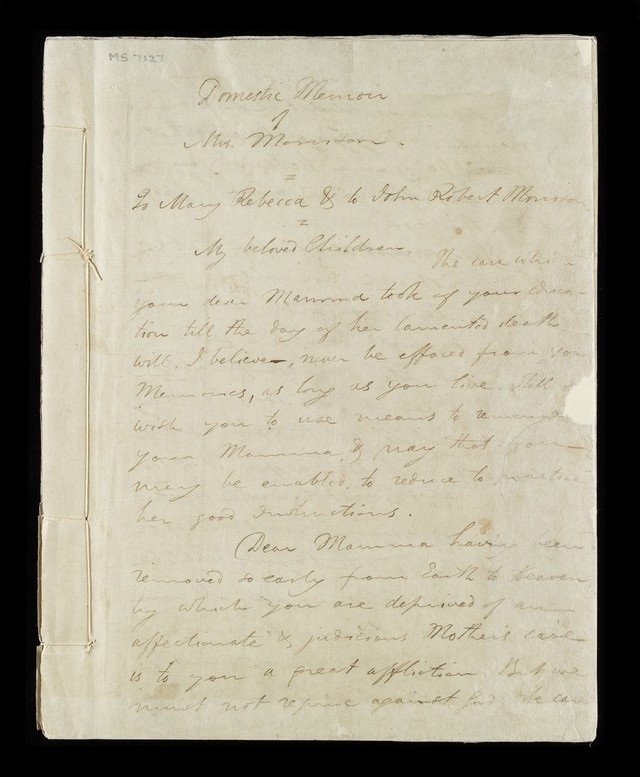 MS 7127
Domestic Memoir
of
Mrs. Morrison.
To Mary Rebecca & to John Robert Morrison
My beloved Children,
The care which
your dear Mamma took of your educa-
tion till the day of her lamented death
will, I believe, never be effaced from your
Memories, as long as you live. Still I
wish you to use means to remember
your Mamma, & pray that you
may be enabled, to reduce to practice
her good Instructions.
Dear Mamma having been
removed so early from Earth to Heaven
by which you are deprived of an
affectionate & judicious Mother's care
is to you a great affliction. But we
must not repine against God. He can